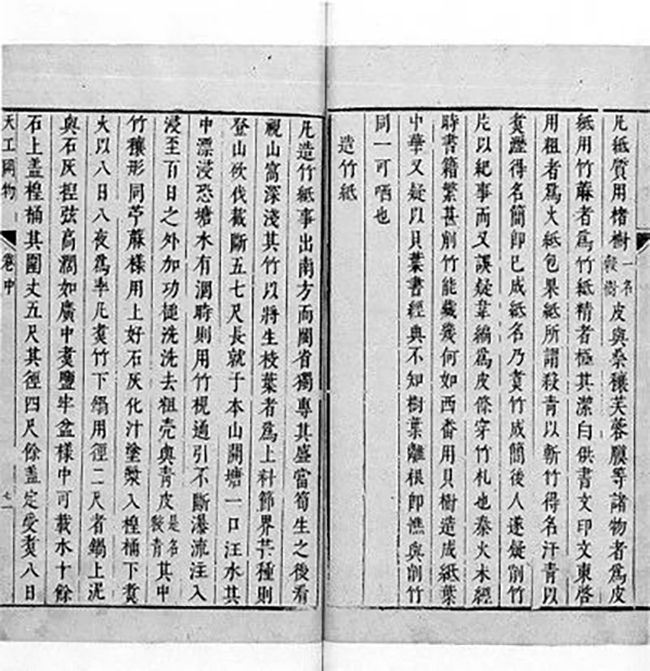 凡紙質用楮樹一名穀樹皮與桑穰芙蓉膜等諸物者爲皮
紙用竹蔴者爲竹紙精者極其潔白供書文印文柬啓
用粗者爲火紙包果紙所謂殺青以斬竹得名汗青以
煮瀝得名簡即已成紙名乃煮竹成簡後人遂疑削竹
片以紀事而又誤疑韋編爲皮條穿竹札也秦火未經
時書籍繁甚削竹能藏幾何如西番用貝樹造成紙葉
中華又疑以貝葉書經典不知樹葉離根即憔與削竹
同一可哂也
造竹紙
凡造竹紙事出南方而閩省獨專其盛當筍生之後看
視山窩深淺其竹以將生枝葉者爲上料節界芒種則
登山砍伐截斷五七尺長就于本山開塘一口注水其
中漂浸恐塘水有涸時則用竹梘通引不斷瀑流注入
浸至百日之外加功槌洗洗去粗殼與青皮是名殺青其中
竹穰形同苧蔴樣用上好石灰化汁塗漿入楻桶下煮
火以八日八夜爲率凡煮竹下鍋用徑二尺者鍋上泥
與石灰捏弦高闊如廣中煮鹽牢盆樣中可載水十餘
石上蓋楻桶其圍丈五尺其徑四尺餘蓋定受煮八日
天工開物 卷中 七一